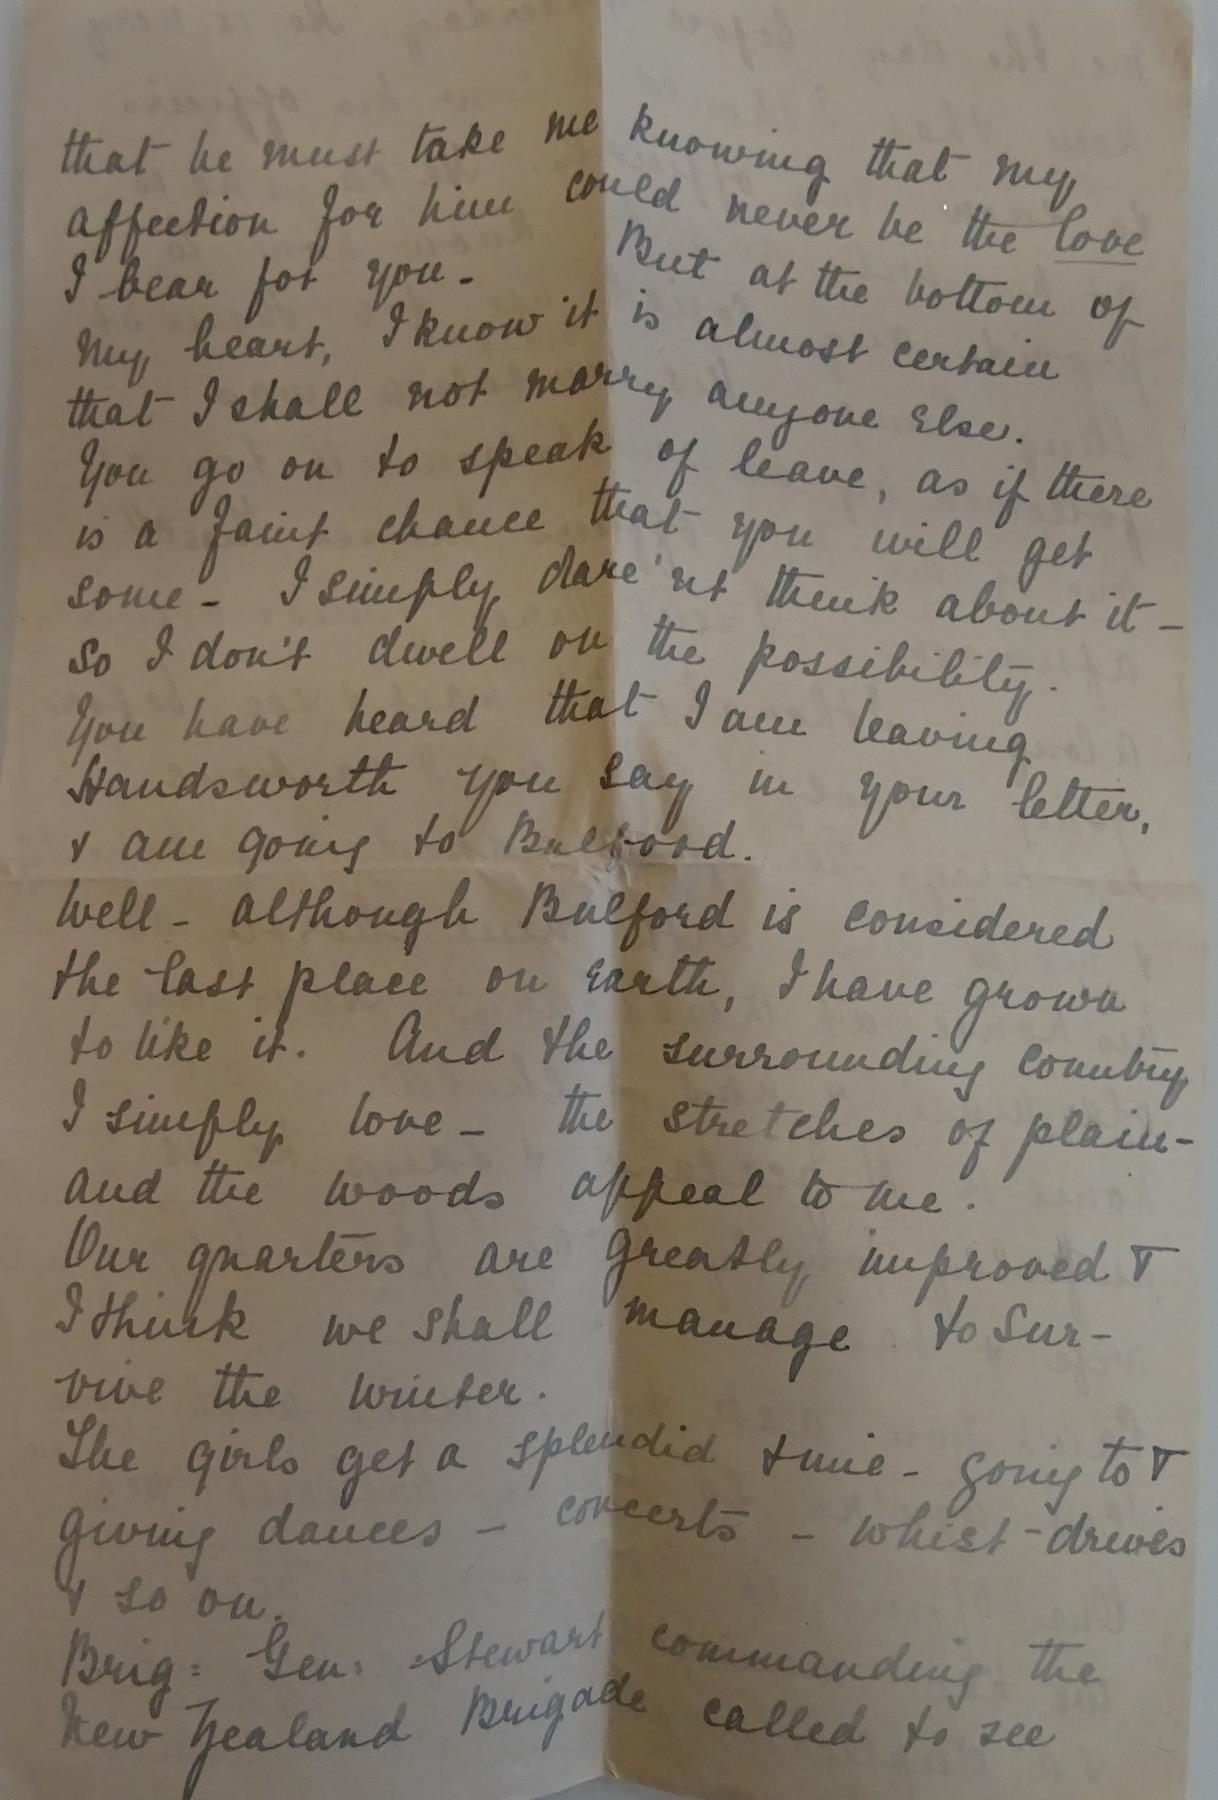 that he must take me knowing that my
affection for him could never be the love
I bear for you - But at the bottom of
my heart, I know it is almost certain
that I shall not marry anyone else.
You go on to speak of leave, as if there
is a faint chance that you will get
some - I simply dare'nt think about it -
so I don't dwell on the possibility.
You have heard that I am leaving
Handsworth you say in your letter,
& am going to Bulford.
Well - although Bulford is considered
the last place on Earth, I have grown
to like it. And the surrounding country
I simply love - the stretches of plain -
and the woods appeal to me.
Our quarters are greatly improved &
I think we shall manage to sur-
vive the winter.
The girls get a splendid time - going to &
giving dances - concerts - whist-drives
& so on.
Brig: Gen: Stewart commanding the
New Zealand Brigade called to see